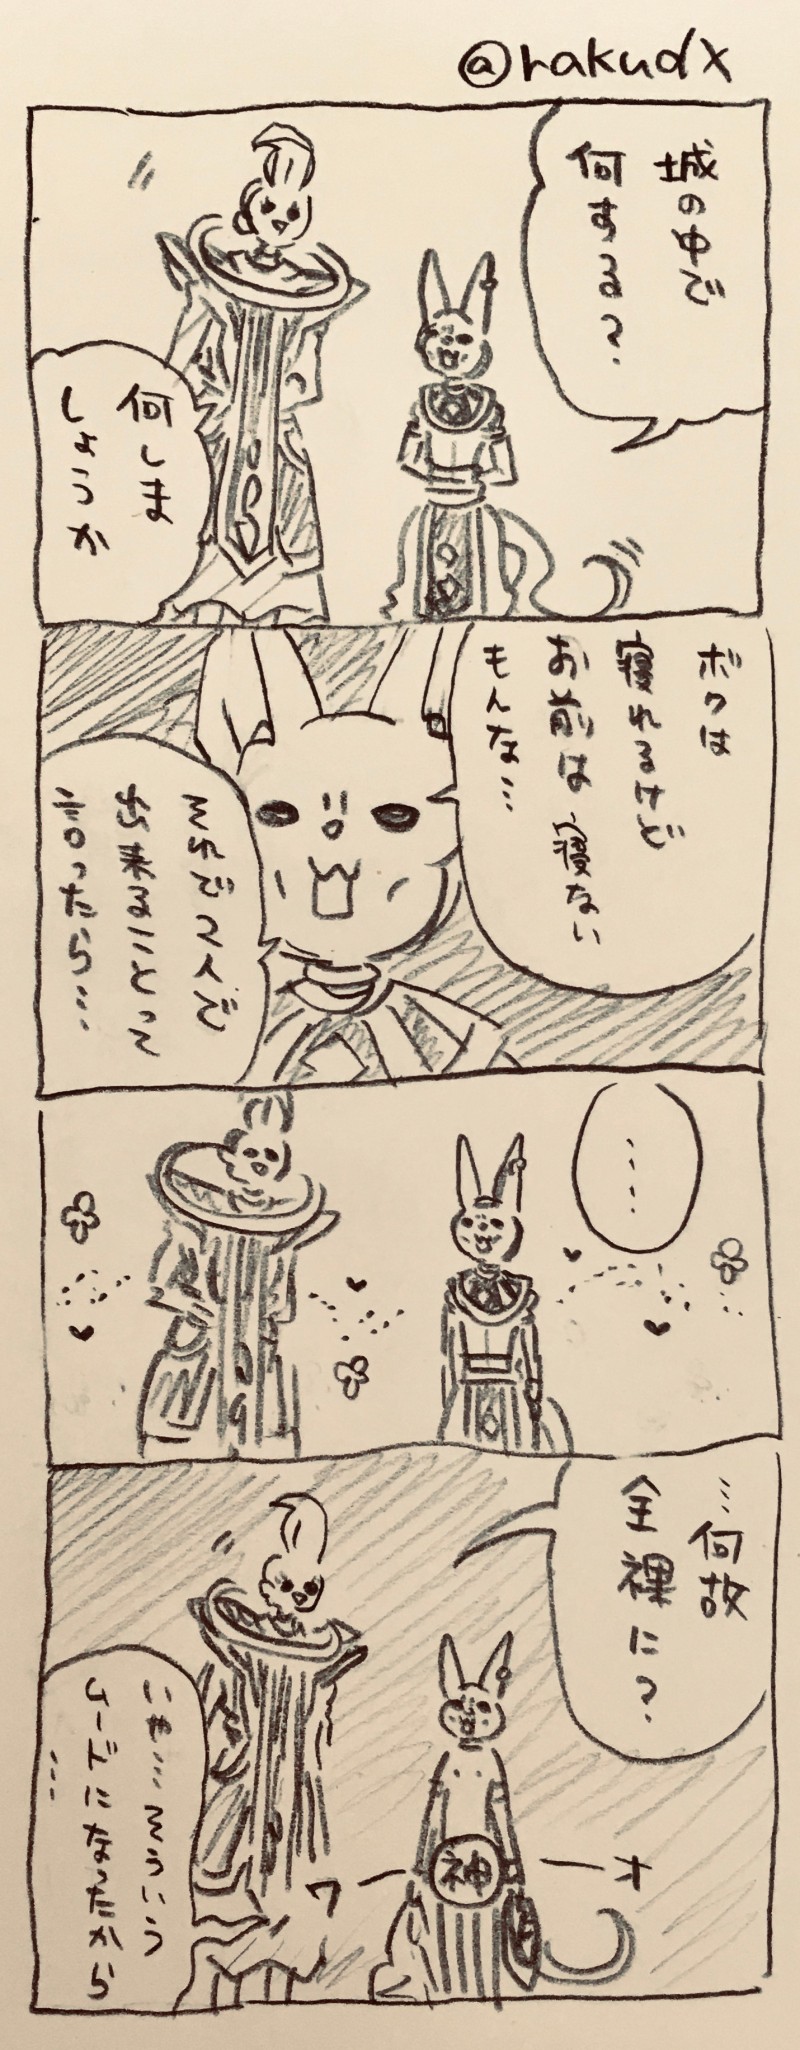 @rakudx
城の中で
何する？
何しま
しょうか
ボクは
寝れるけど
お前は寝ない
もんな…
二人で
出来ることって
言ったら…
……
…何故
全裸に？
神
いや…そういう
ムードになったから
…